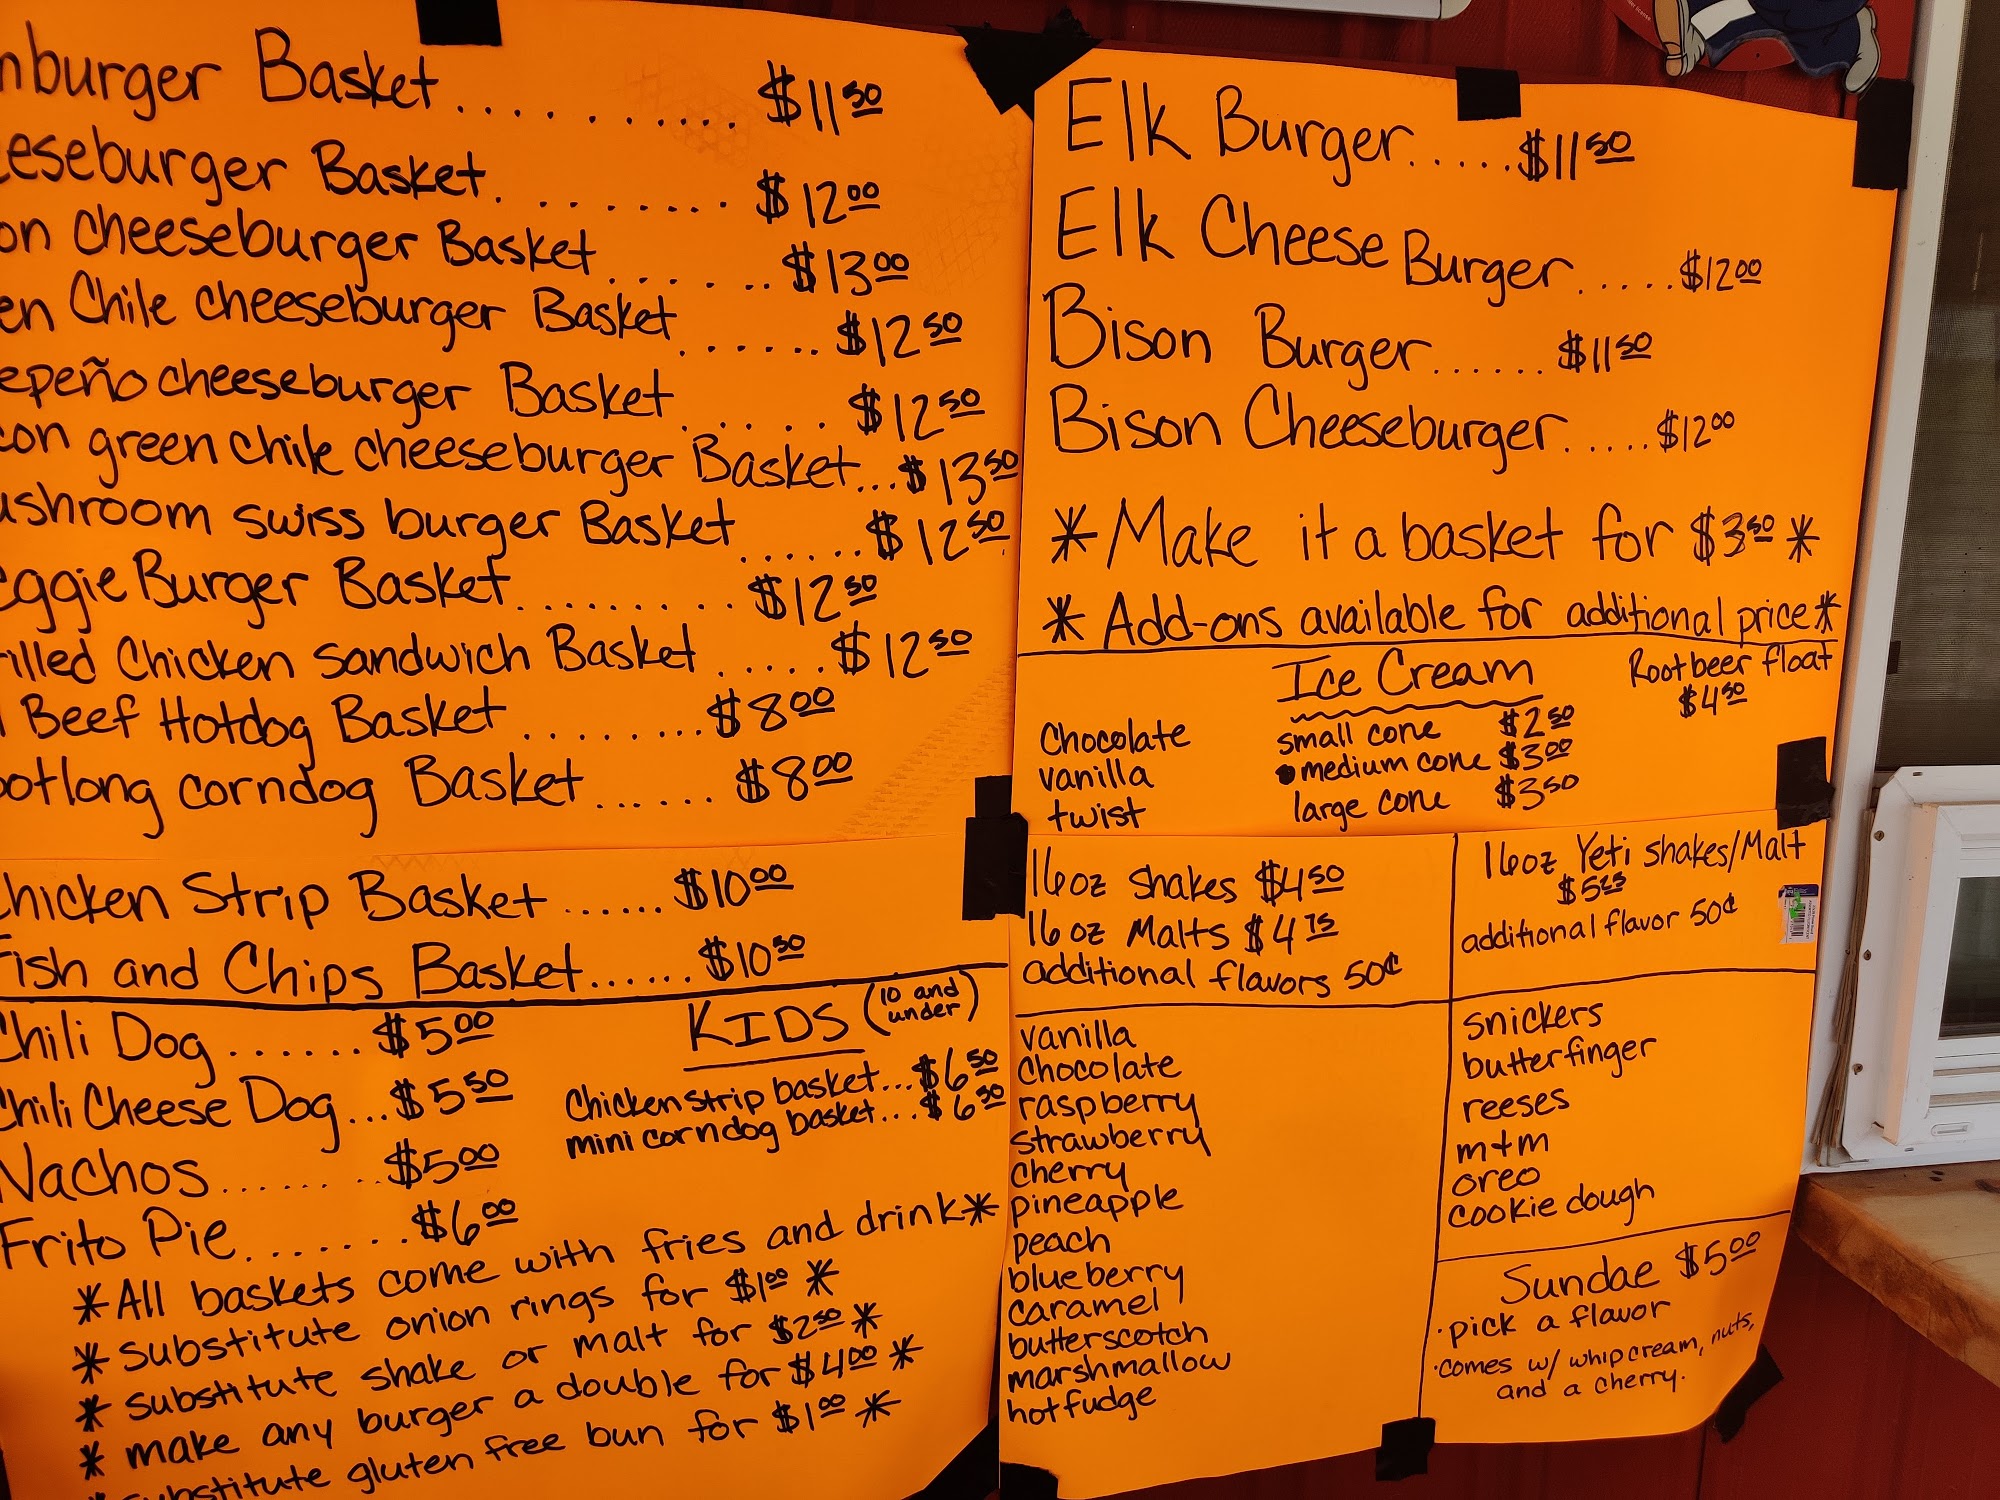 nburger Basket.......... $11.50
eeseburger Basket......... $12.00
on cheeseburger Basket....... $13.00
en Chile cheeseburger Basket...... $12.50
epeño cheeseburger Basket...... $12.50
con green chile cheeseburger Basket... $13.50
ushroom swiss burger Basket...... $12.50
eggie Burger Basket......... $12.50
rilled Chicken sandwich Basket..... $12.50
Beef Hotdog Basket........ $8.00
ootlong corndog Basket...... $8.00
Chicken Strip Basket...... $10.00
Fish and Chips Basket...... $10.50
Chili Dog...... $5.00
Chili Cheese Dog... $5.50
Nachos....... $5.00
Frito Pie....... $6.00
KIDS (10 and under)
Chicken strip basket... $6.50
mini corndog basket... $6.50
*All baskets come with fries and drink*
*substitute onion rings for $1.00*
*substitute shake or malt for $2.50*
*make any burger a double for $4.00*
*substitute gluten free bun for $1.00*
Elk Burger..... $11.50
Elk Cheese Burger..... $12.00
Bison Burger...... $11.50
Bison Cheeseburger..... $12.00
*Make it a basket for $3.50*
*Add-ons available for additional price*
Ice Cream
Chocolate
vanilla
twist
small cone $2.50
medium cone $3.00
large cone $3.50
Rootbeer float
$4.50
16oz shakes $4.50
16oz Malts $4.75
additional flavors 50¢
16oz Yeti shakes/Malt
$5.25
additional flavor 50¢
vanilla
chocolate
raspberry
strawberry
cherry
pineapple
peach
blueberry
caramel
butterscotch
marshmallow
hotfudge
snickers
butterfinger
reeses
m+m
oreo
cookie dough
Sundae $5.00
·pick a flavor
·comes w/ whipcream, nuts,
and a cherry.